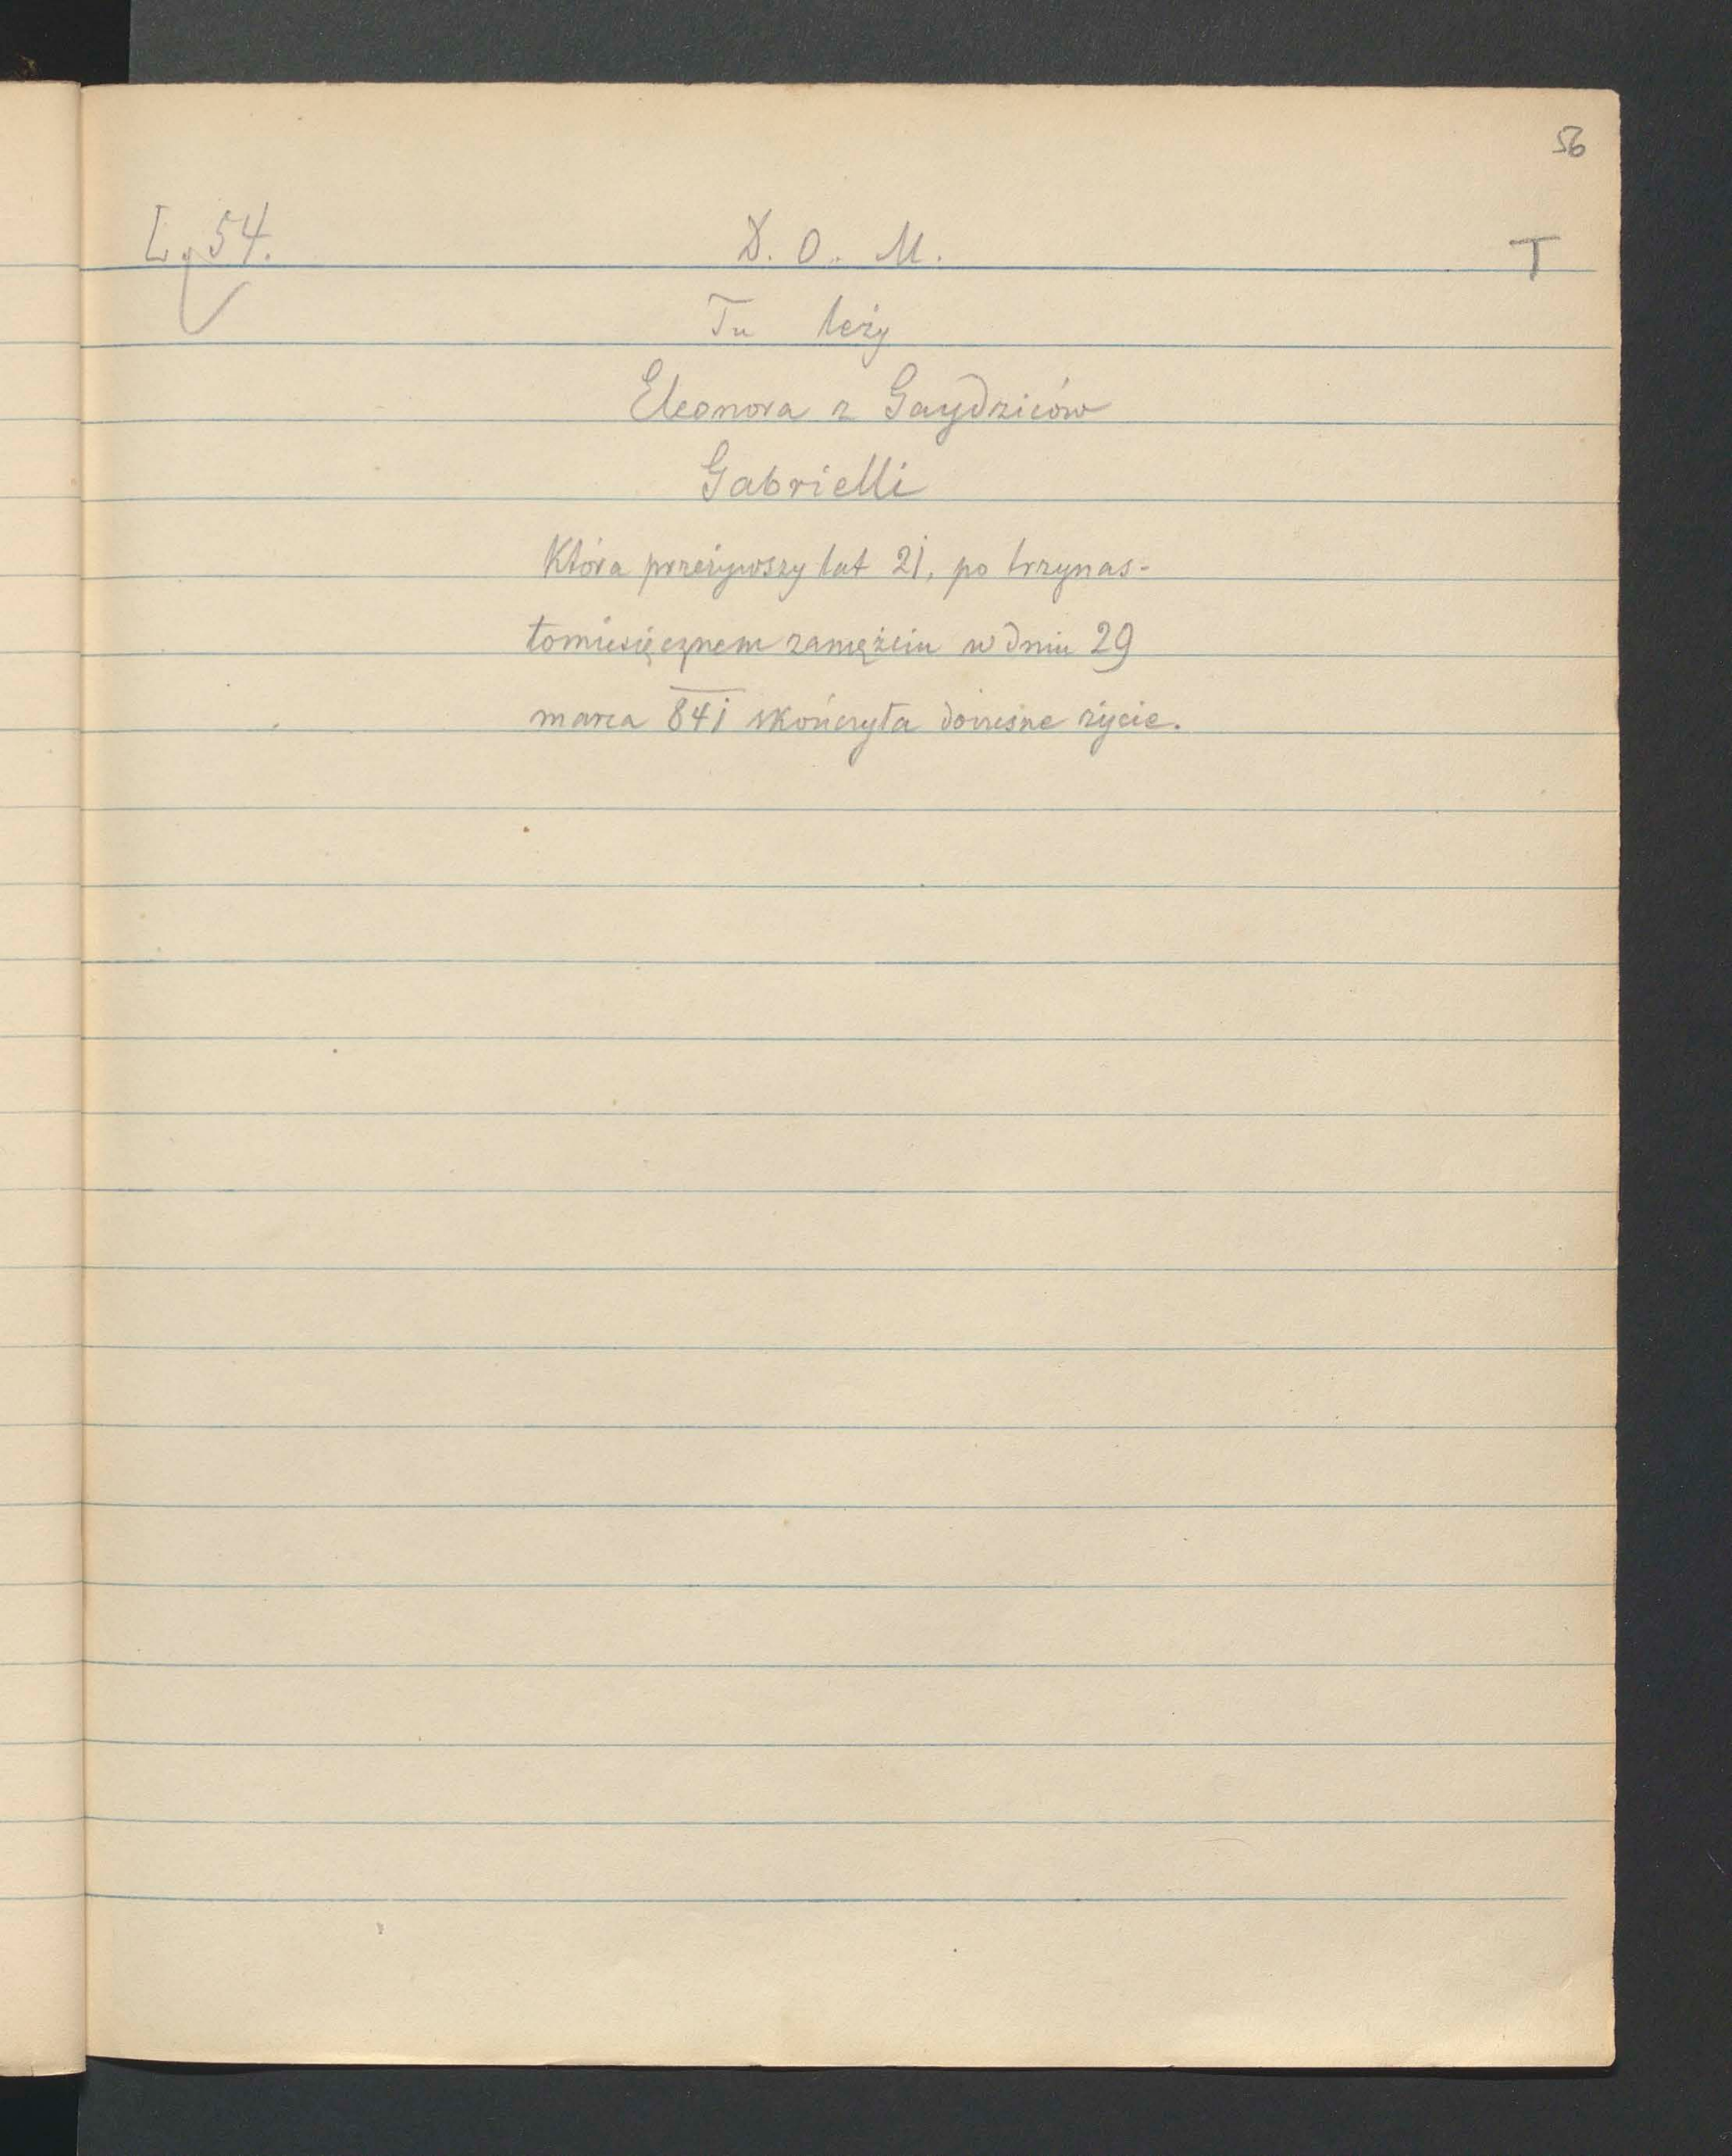 56
L. 54. D. O. M. T
Tu leży
Eleonora z Gaydziców
Gabrielli
Która przeżywszy lat 21, po trzynas-
tomiesięcznem zamężciu w dniu 29
marca 841 skończyła doczesne życie.